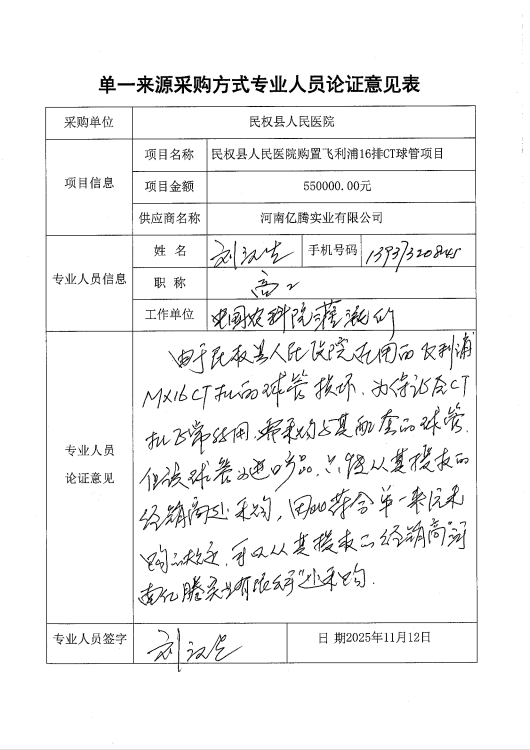 单一来源采购方式专业人员论证意见表
采购单位 民权县人民医院
项目信息
项目名称 民权县人民医院购置飞利浦16排CT球管项目
项目金额 550000.00元
供应商名称 河南亿腾实业有限公司
专业人员信息
姓 名 刘汉生 手机号码
职 称 高工
工作单位 中国农科院灌溉所
专业人员
论证意见
由于民权县人民医院在用的飞利浦
MX16CT机的球管损坏,为保证该CT
机正常使用,需采购与其配套的球管,
但该球管为进口产品,只能从其授权的
经销商处采购,因此符合单一来源采
购的规定,可以从其授权的经销商"河
南亿腾实业有限公司"处采购.
专业人员签字 刘汉生 日 期2025年11月12日